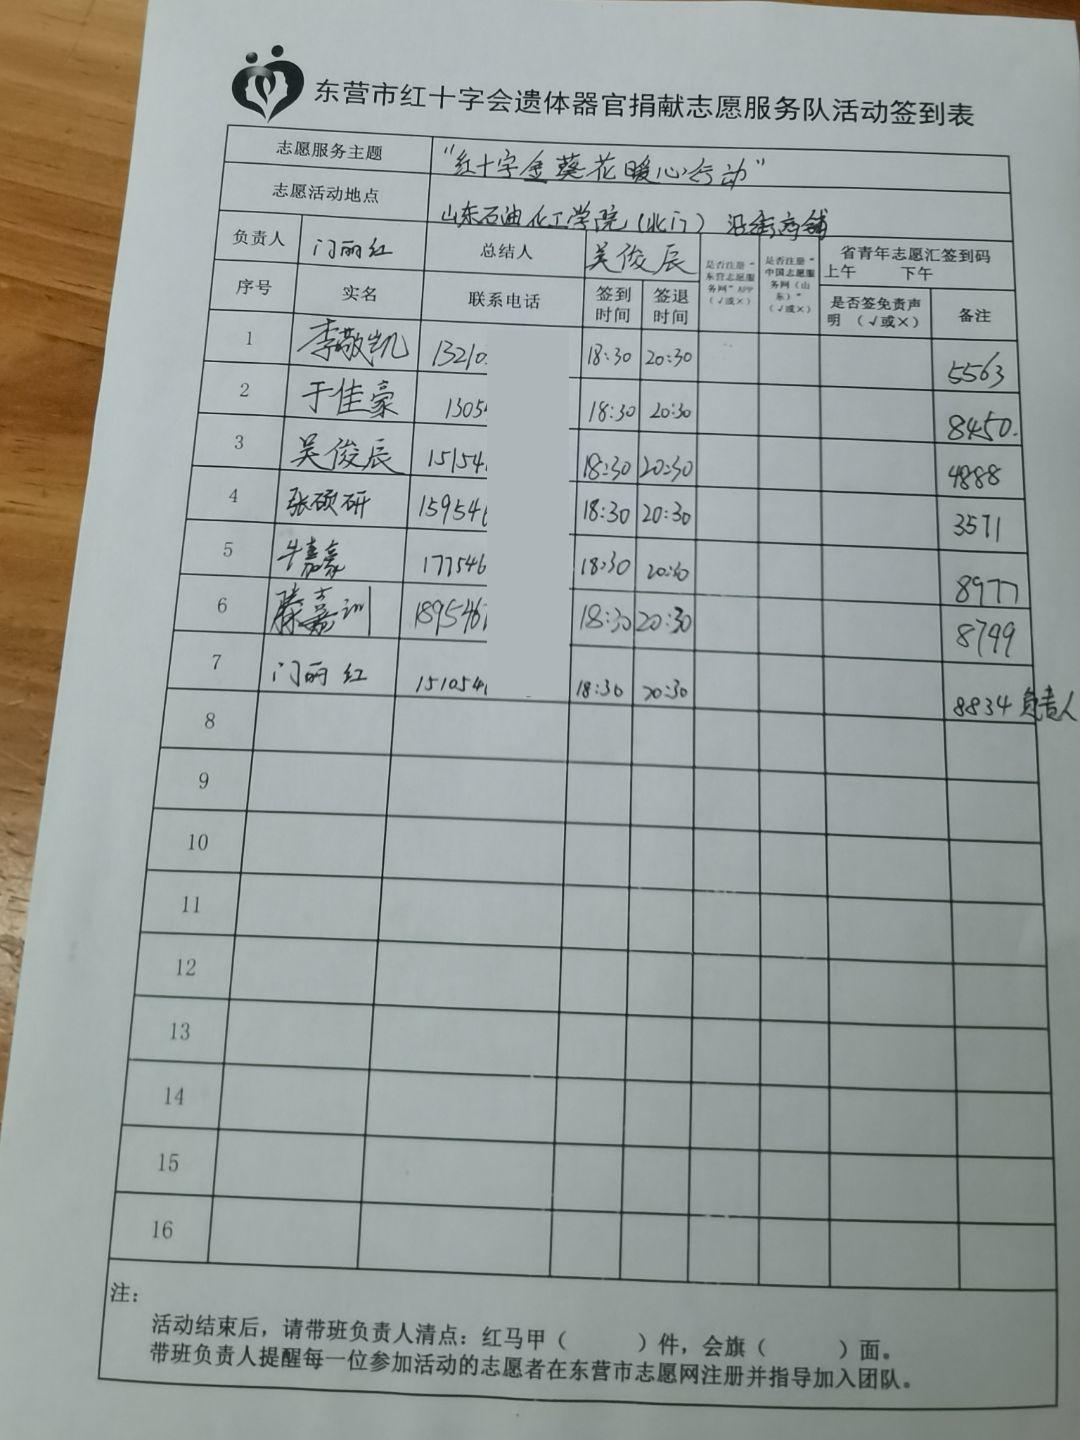 东营市红十字会遗体器官捐献志愿服务队活动签到表
志愿服务主题 “红十字金葵花暖心行动”
志愿活动地点 山东石油化工学院(北门) 沿街商铺
负责人 门丽红 总结人 吴俊辰 是否注册“东营志愿服务网”APP（√或×） 是否注册“中国志愿服务网（山东）”（√或×） 省青年志愿汇签到码 上午 下午
序号 实名 联系电话 签到时间 签退时间 是否签免责声明（√或×） 备注
1 李敬凯 13210 18:30 20:30 5563
2 于佳豪 1305 18:30 20:30 8450.
3 吴俊辰 15154 18:30 20:30 4888
4 张硕研 15954 18:30 20:30 3571
5 牛嘉豪 177546 18:30 20:30 8977
6 滕嘉训 189546 18:30 20:30 8749
7 门丽红 151054 18:30 20:30 8834 负责人
8
9
10
11
12
13
14
15
16
注：
活动结束后，请带班负责人清点：红马甲（ ）件，会旗（ ）面。
带班负责人提醒每一位参加活动的志愿者在东营市志愿网注册并指导加入团队。